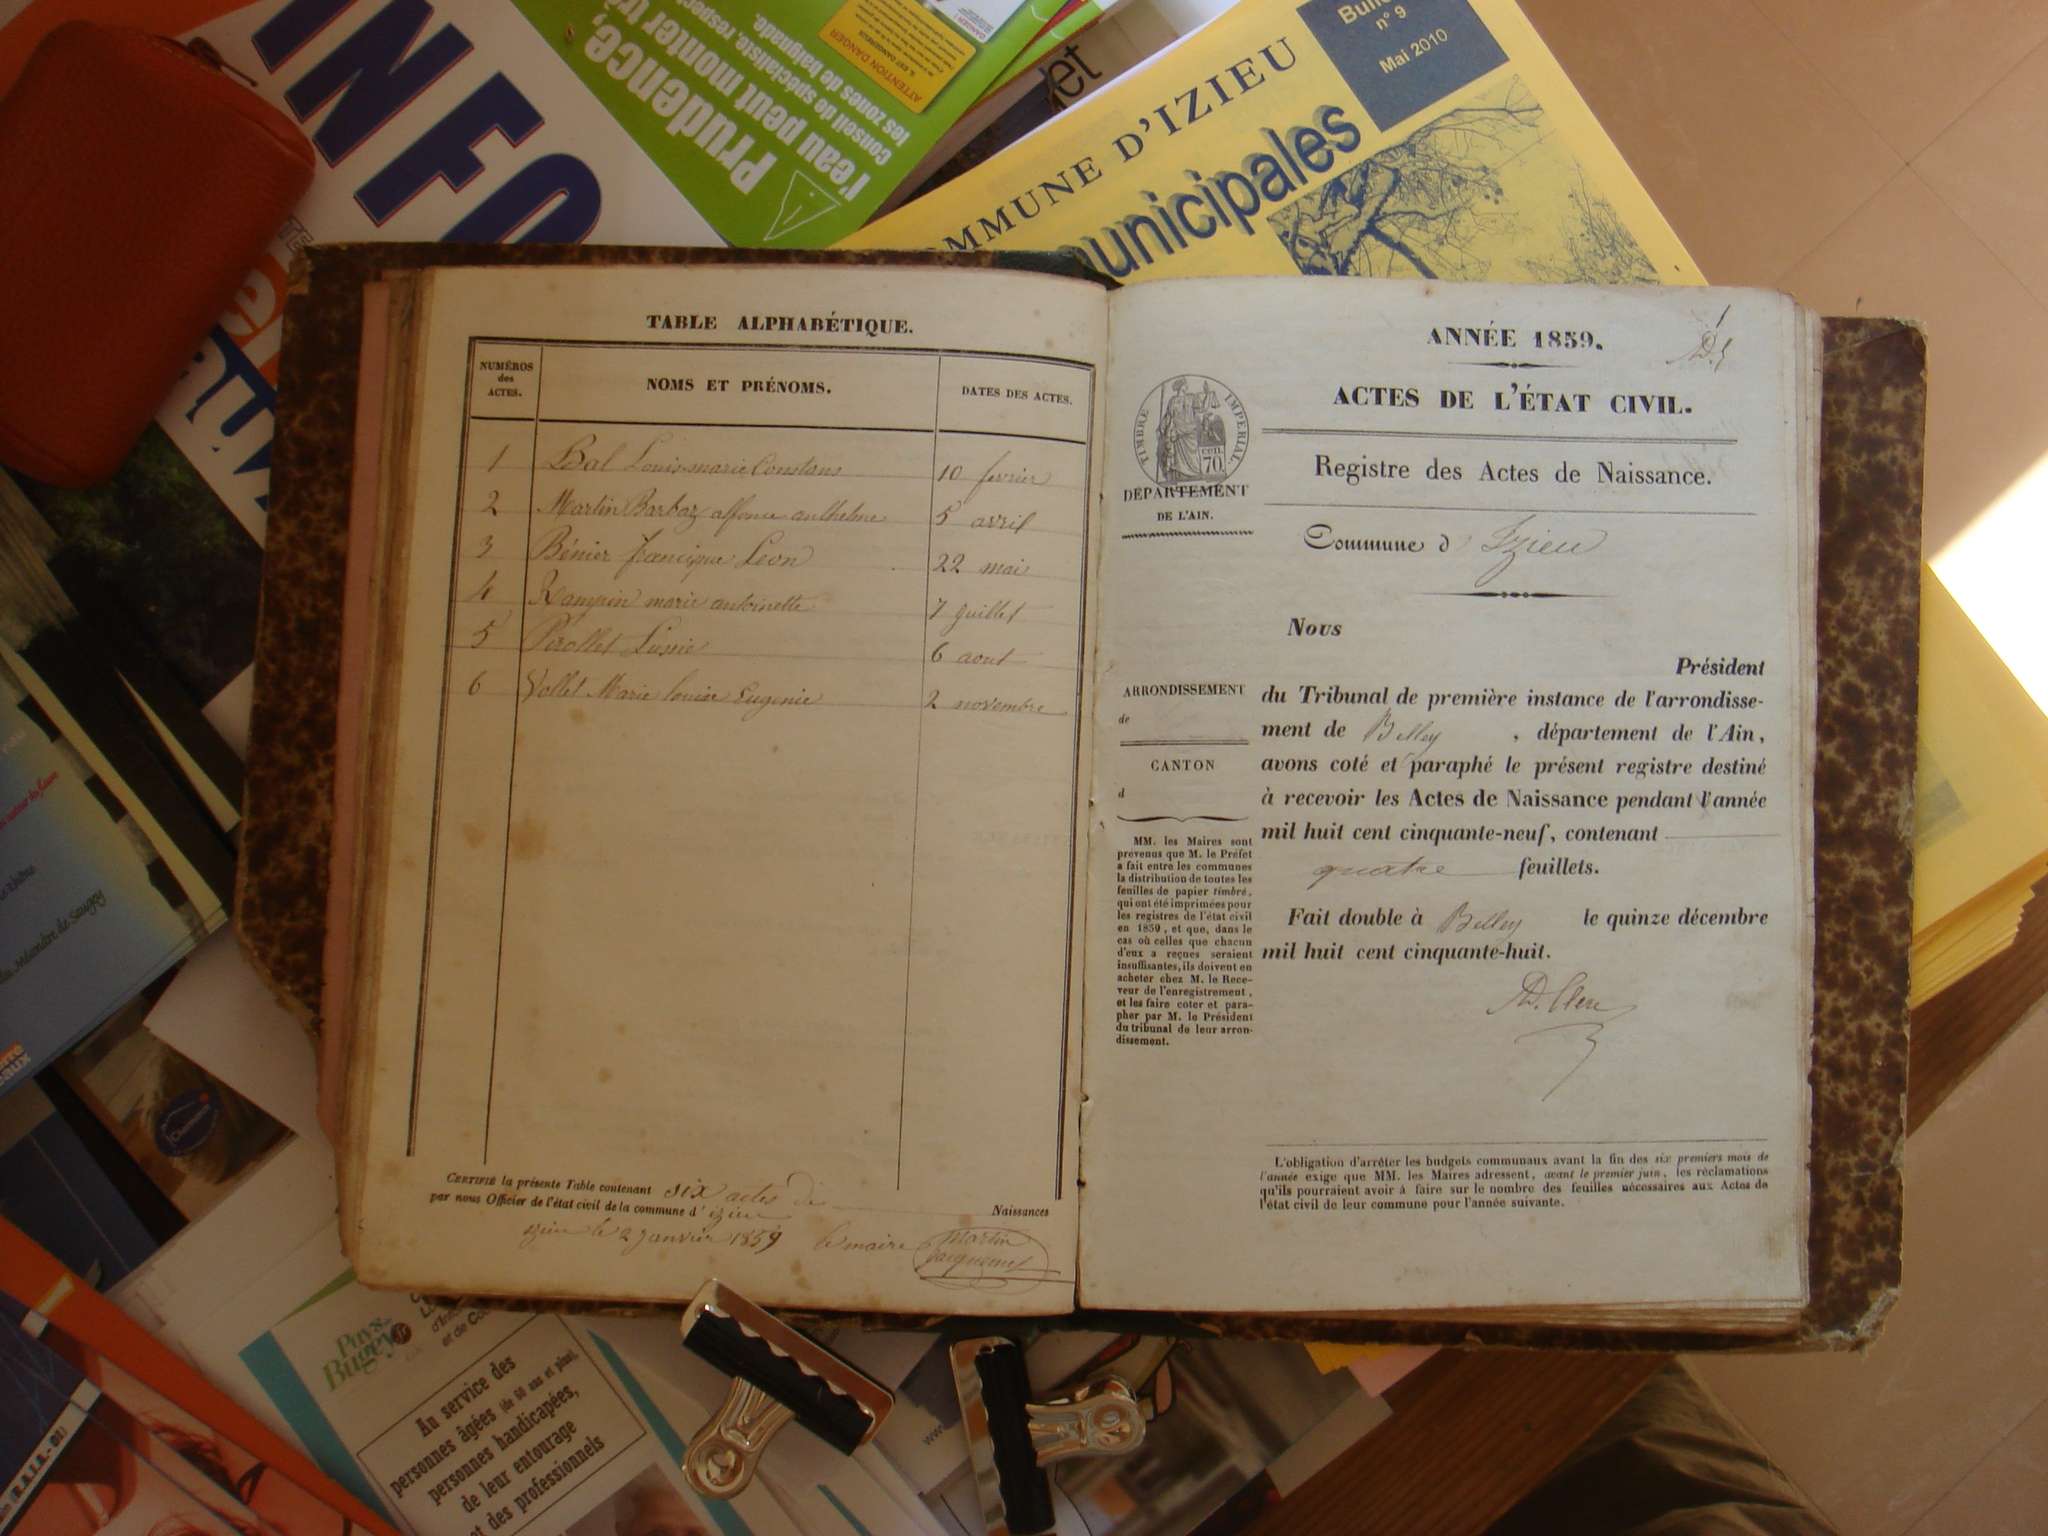 INFO
Prudence,
l'eau peut monter trè
conseil de spécialiste, respe
les zones de baignade.
ATTENTION DANGER
COMMUNE D'IZIEU
municipales
n° 9
Mai 2010
TABLE ALPHABÉTIQUE.
NUMÉROS des ACTES.
NOMS ET PRÉNOMS.
DATES DES ACTES.
1 Bal Louis marie Constans 10 fevrier
2 Martin Barbaz alfonce anthelme 5 avril
3 Bénier francique Leon 22 mai
4 Rampin marie antoinette 7 guillet
5 Pérollet 6 aout
6 Vollet Marie louise Eugenie 2 novembre
CERTIFIÉ la présente Table contenant six actes de Naissances
par nous Officier de l'état civil de la commune d' izieu
izieu le 2 janvier 1859 le maire Martin
ANNÉE 1859.
1
ACTES DE L'ÉTAT CIVIL.
TIMBRE IMPÉRIAL
CEN. 70
DÉPARTEMENT
DE L'AIN.
Registre des Actes de Naissance.
Commune d' Izieu
Nous
Président
du Tribunal de première instance de l'arrondisse-
ment de Belley , département de l'Ain,
avons coté et paraphé le présent registre destiné
à recevoir les Actes de Naissance pendant l'année
mil huit cent cinquante-neuf, contenant
quatre feuillets.
Fait double à Belley le quinze décembre
mil huit cent cinquante-huit.
ARRONDISSEMENT
de
CANTON
d
MM. les Maires sont
prévenus que M. le Préfet
a fait entre les communes
la distribution de toutes les
feuilles de papier timbré,
qui ont été imprimées pour
les registres de l'état civil
en 1859, et que, dans le
cas où celles que chacun
d'eux a reçues seraient
insuffisantes, ils doivent en
acheter chez M. le Rece-
veur de l'enregistrement,
et les faire coter et para-
pher par M. le Président
du tribunal de leur arron-
dissement.
L'obligation d'arrêter les budgets communaux avant la fin des six premiers mois de
l'année exige que MM. les Maires adressent, avant le premier juin, les réclamations
qu'ils pourraient avoir à faire sur le nombre des feuilles nécessaires aux Actes de
l'état civil de leur commune pour l'année suivante.
Pays de
Bugey
Au service des
personnes âgées (de 60 ans et plus),
personnes handicapées,
de leur entourage
et des professionnels